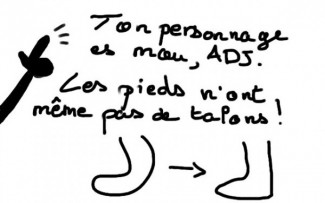 Ton personnage
es mou, ADJ.
Les pieds n'ont
même pas de talons !